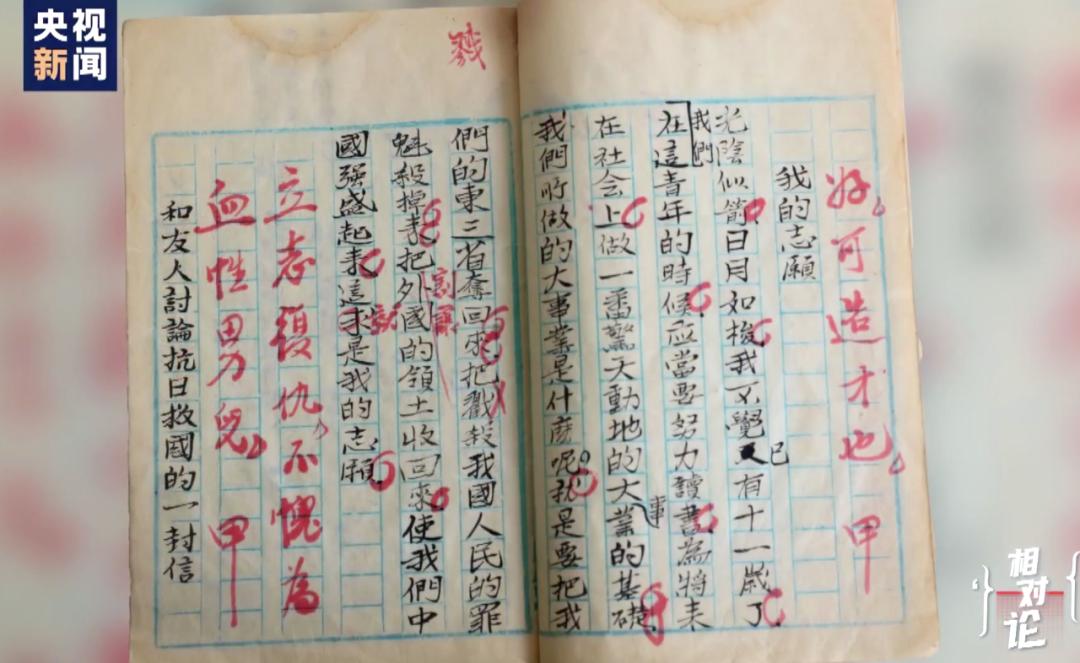 央视新闻
好可造才也 甲
我的志願
光陰似箭日月如梭我不覺已有十一歲了
我們
在這青年的時候应當要努力讀書為將来
在社会上做一番驚天動地的大事業的基礎
我們所做的大事業是什麽呢?就是要把我
戮
們的東三省奪回來把戳殺我國人民的罪
魁殺掉来把外國的領土收回來使我們中
割讓
國強盛起来這才是我的志願
立志復仇不愧為
血性男兒 甲
和友人討論抗日救國的一封信
相对论